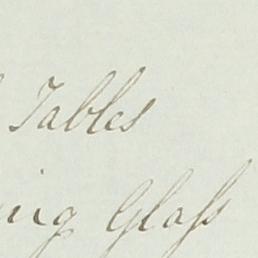 Tables
ing Glaſs